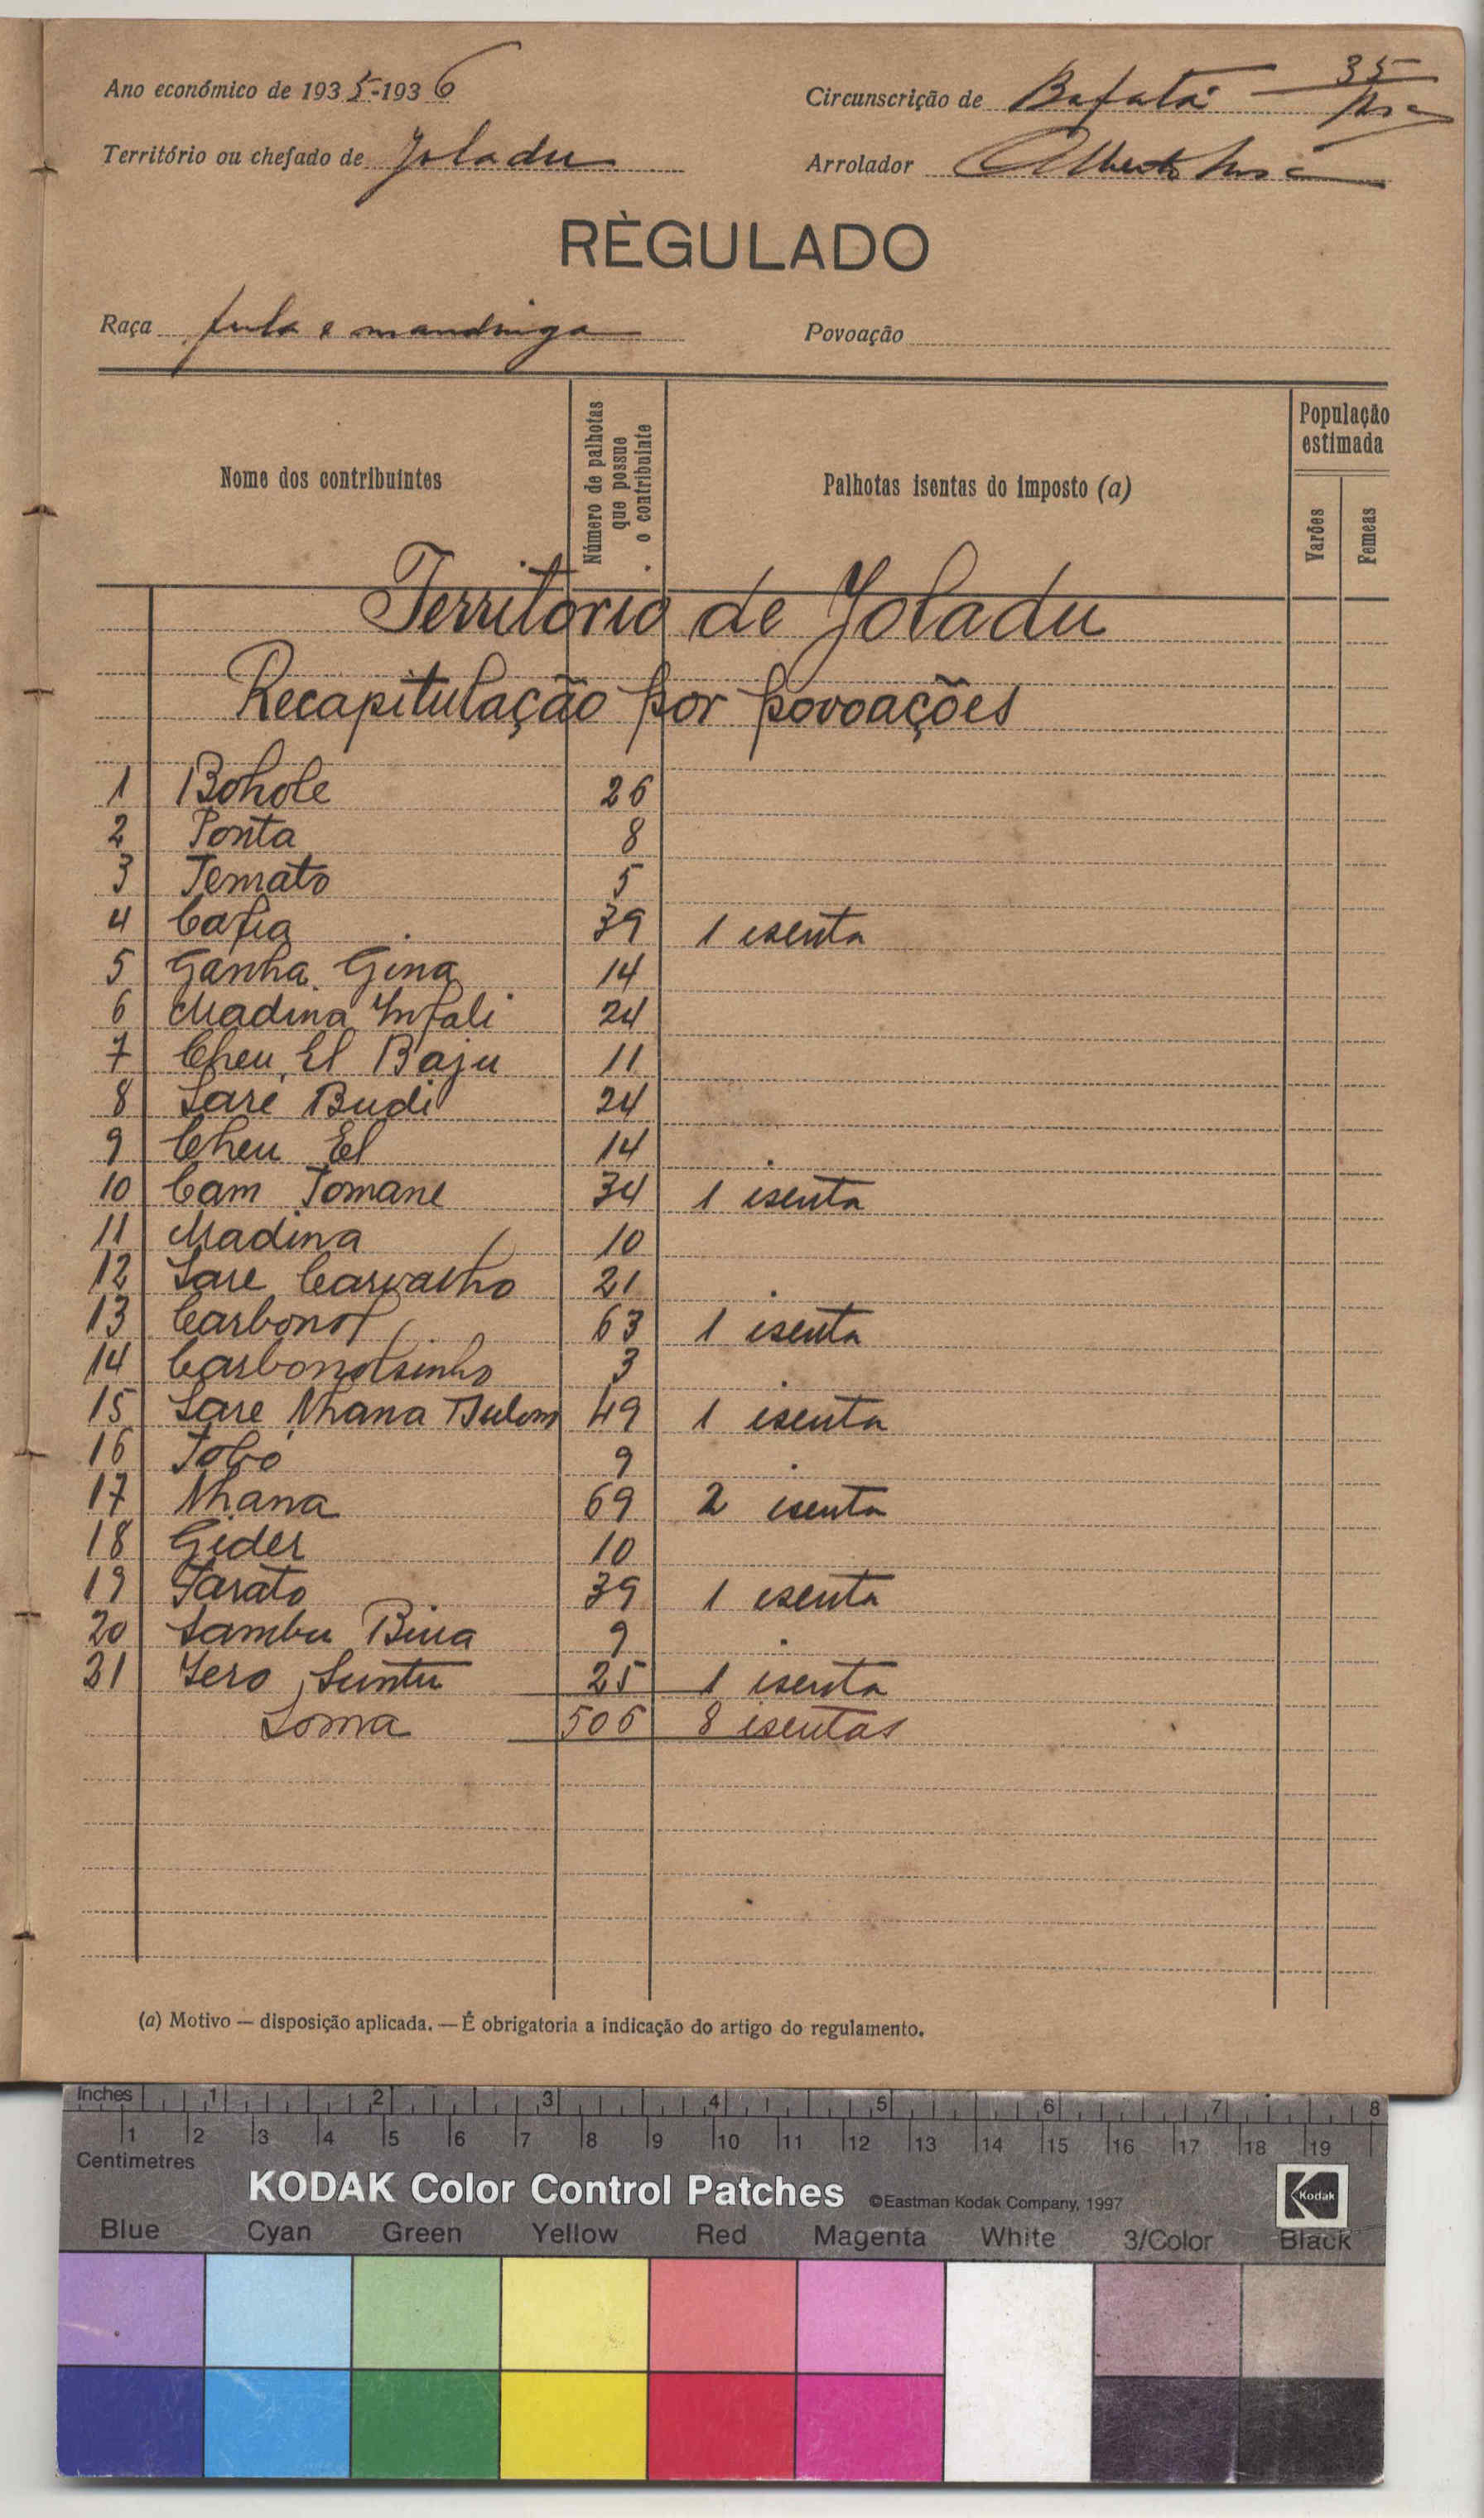 Ano económico de 1935-1936
Circunscrição de Bafatá 35
Território ou chefado de Joladu
Arrolador Alberto
RÈGULADO
Raça fula e mandinga
Povoação
Nome dos contribuintes
Número de palhotas que possue o contribuinte
Palhotas isentas do imposto (a)
População estimada
Varões
Femeas
Territorio de Joladu
Recapitulação por povoações
1 Bohole 26
2 Ponta 8
3 Temato 5
4 Cafia 39 1 isenta
5 Ganha Gina 14
6 Madina Infali 24
7 Cheu El Baju 11
8 Saré Budi 24
9 Cheu El 14
10 Cam Tomane 34 1 isenta
11 Madina 10
12 Sare Carvalho 21
13 Carbonol 63 1 isenta
14 Carbonolsinho 3
15 Sare Nhana Bulom 49 1 isenta
16 Jobó 9
17 Nhana 69 2 isenta
18 Geder 10
19 Tarato 39 1 isenta
20 Sambu Biua 9
21 Iero Suntu 25 1 isenta
Soma 506 8 isentas
(a) Motivo — disposição aplicada. — É obrigatoria a indicação do artigo do regulamento.
Inches 1 2 3 4 5 6 7 8
1 2 3 4 5 6 7 8 9 10 11 12 13 14 15 16 17 18 19
Centimetres
KODAK Color Control Patches ©Eastman Kodak Company, 1997 Kodak
Blue Cyan Green Yellow Red Magenta White 3/Color Black